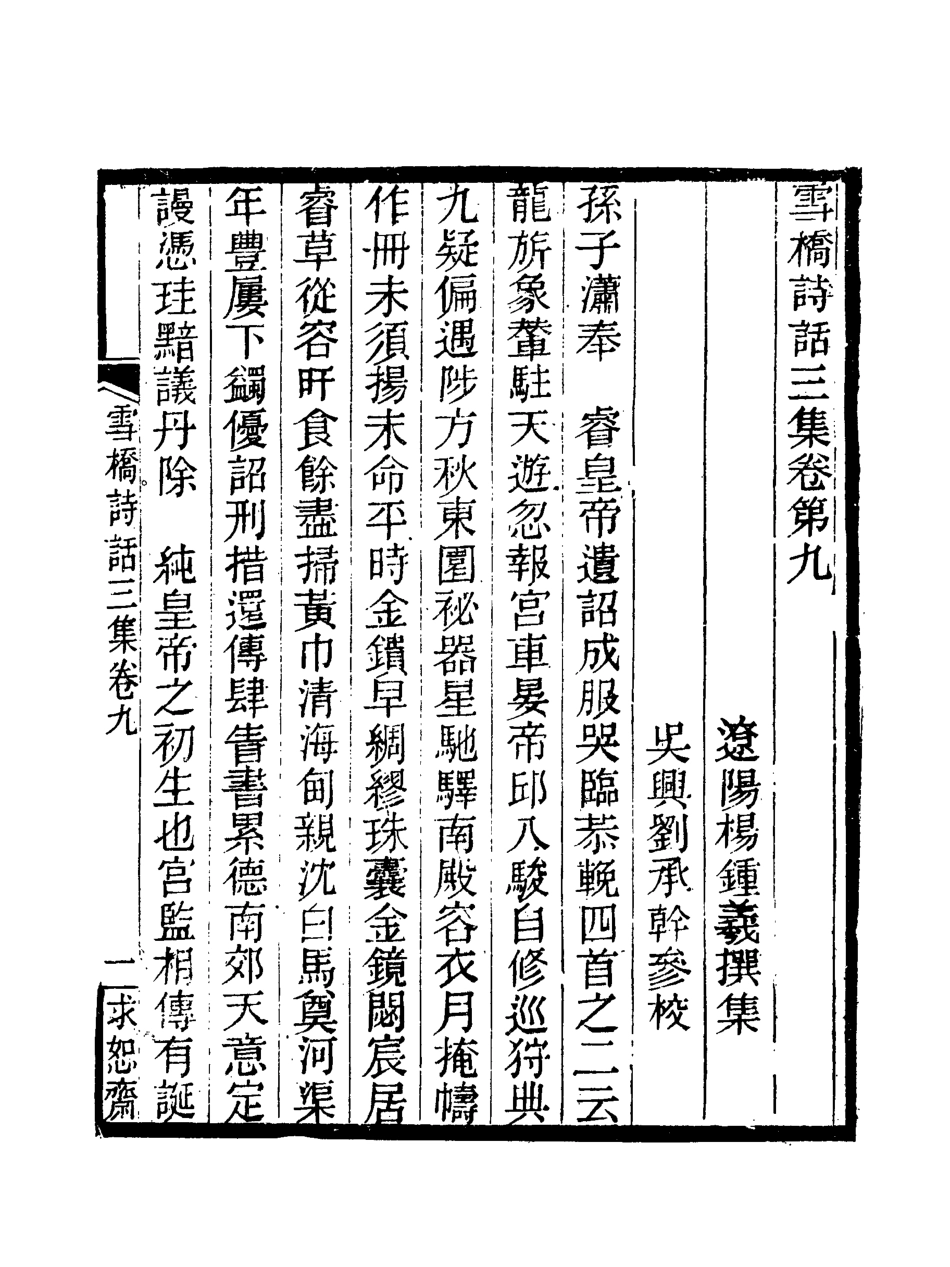 雪橋詩話三集卷第九
遼陽楊鍾羲撰集
吳興劉承幹參校
孫子瀟奉　睿皇帝遺詔成服哭臨恭輓四首之二云
龍旂象輦駐天遊忽報宮車晏帝邱八駿自修巡狩典
九疑偏遇陟方秋東園祕器星馳驛南殿容衣月掩幬
作冊未須揚末命平時金鎖早綢繆珠囊金鏡閟宸居
睿草從容旰食餘盡掃黃巾清海甸親沈白馬奠河渠
年豐屢下蠲優詔刑措還傳肆眚書累德南郊天意定
謾憑珪黯議丹除　純皇帝之初生也宮監相傳有誕
雪橋詩話三集卷九
一
求恕齋